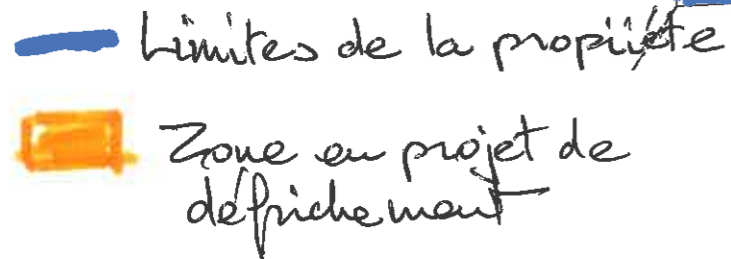 Limites de la propriété
Zone en projet de
défrichement